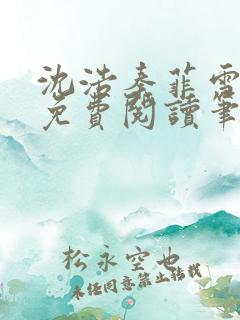 沈浩秦菲雪
免費閱讀筆
松永空也
未经同意禁止转载